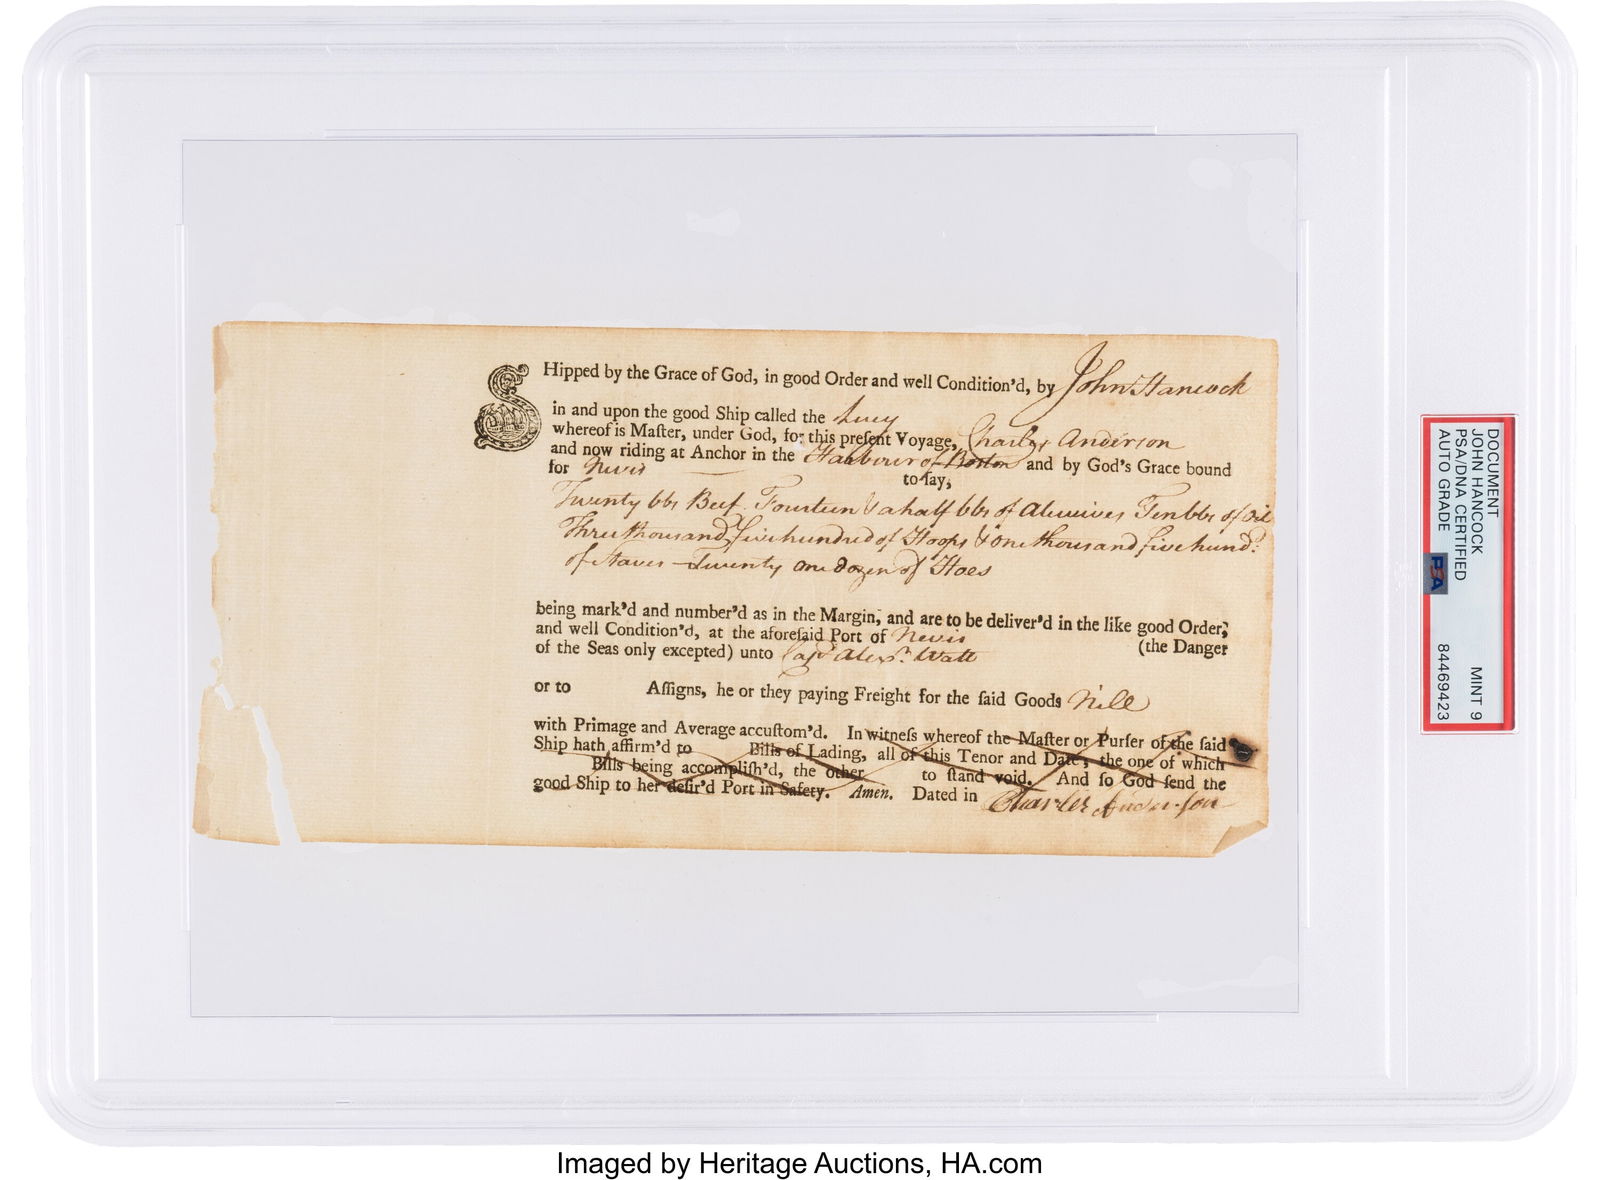 SHipped by the Grace of God, in good Order and well Condition'd, by John Hancock
in and upon the good Ship called the Lucy
whereof is Maſter, under God, for this preſent Voyage, Charles Anderson
and now riding at Anchor in the Harbour of Boston and by God's Grace bound
for Nevis
to ſay,
Twenty bbs Beef. Fourteen & a half bbs of Alewives Ten bbs of Oil
Three thousand five hundred of Hoops & one thousand five hund.d
of Staves - Twenty one dozen of Hoes
being mark'd and number'd as in the Margin, and are to be deliver'd in the like good Order,
and well Condition'd, at the aforeſaid Port of Nevis
(the Danger
of the Seas only excepted) unto Cap.t Alex.r Watt
or to Aſſigns, he or they paying Freight for the ſaid Goods Nill
with Primage and Average accuſtom'd. In witneſs whereof the Maſter or Purſer of the ſaid
Ship hath affirm'd to Bills of Lading, all of this Tenor and Date; the one of which
Bills being accompliſh'd, the other to ſtand void. And ſo God ſend the
good Ship to her deſir'd Port in Safety. Amen. Dated in Charles Anderson
DOCUMENT
JOHN HANCOCK
PSA/DNA CERTIFIED
AUTO GRADE
MINT 9
84469423
PSA
Imaged by Heritage Auctions, HA.com